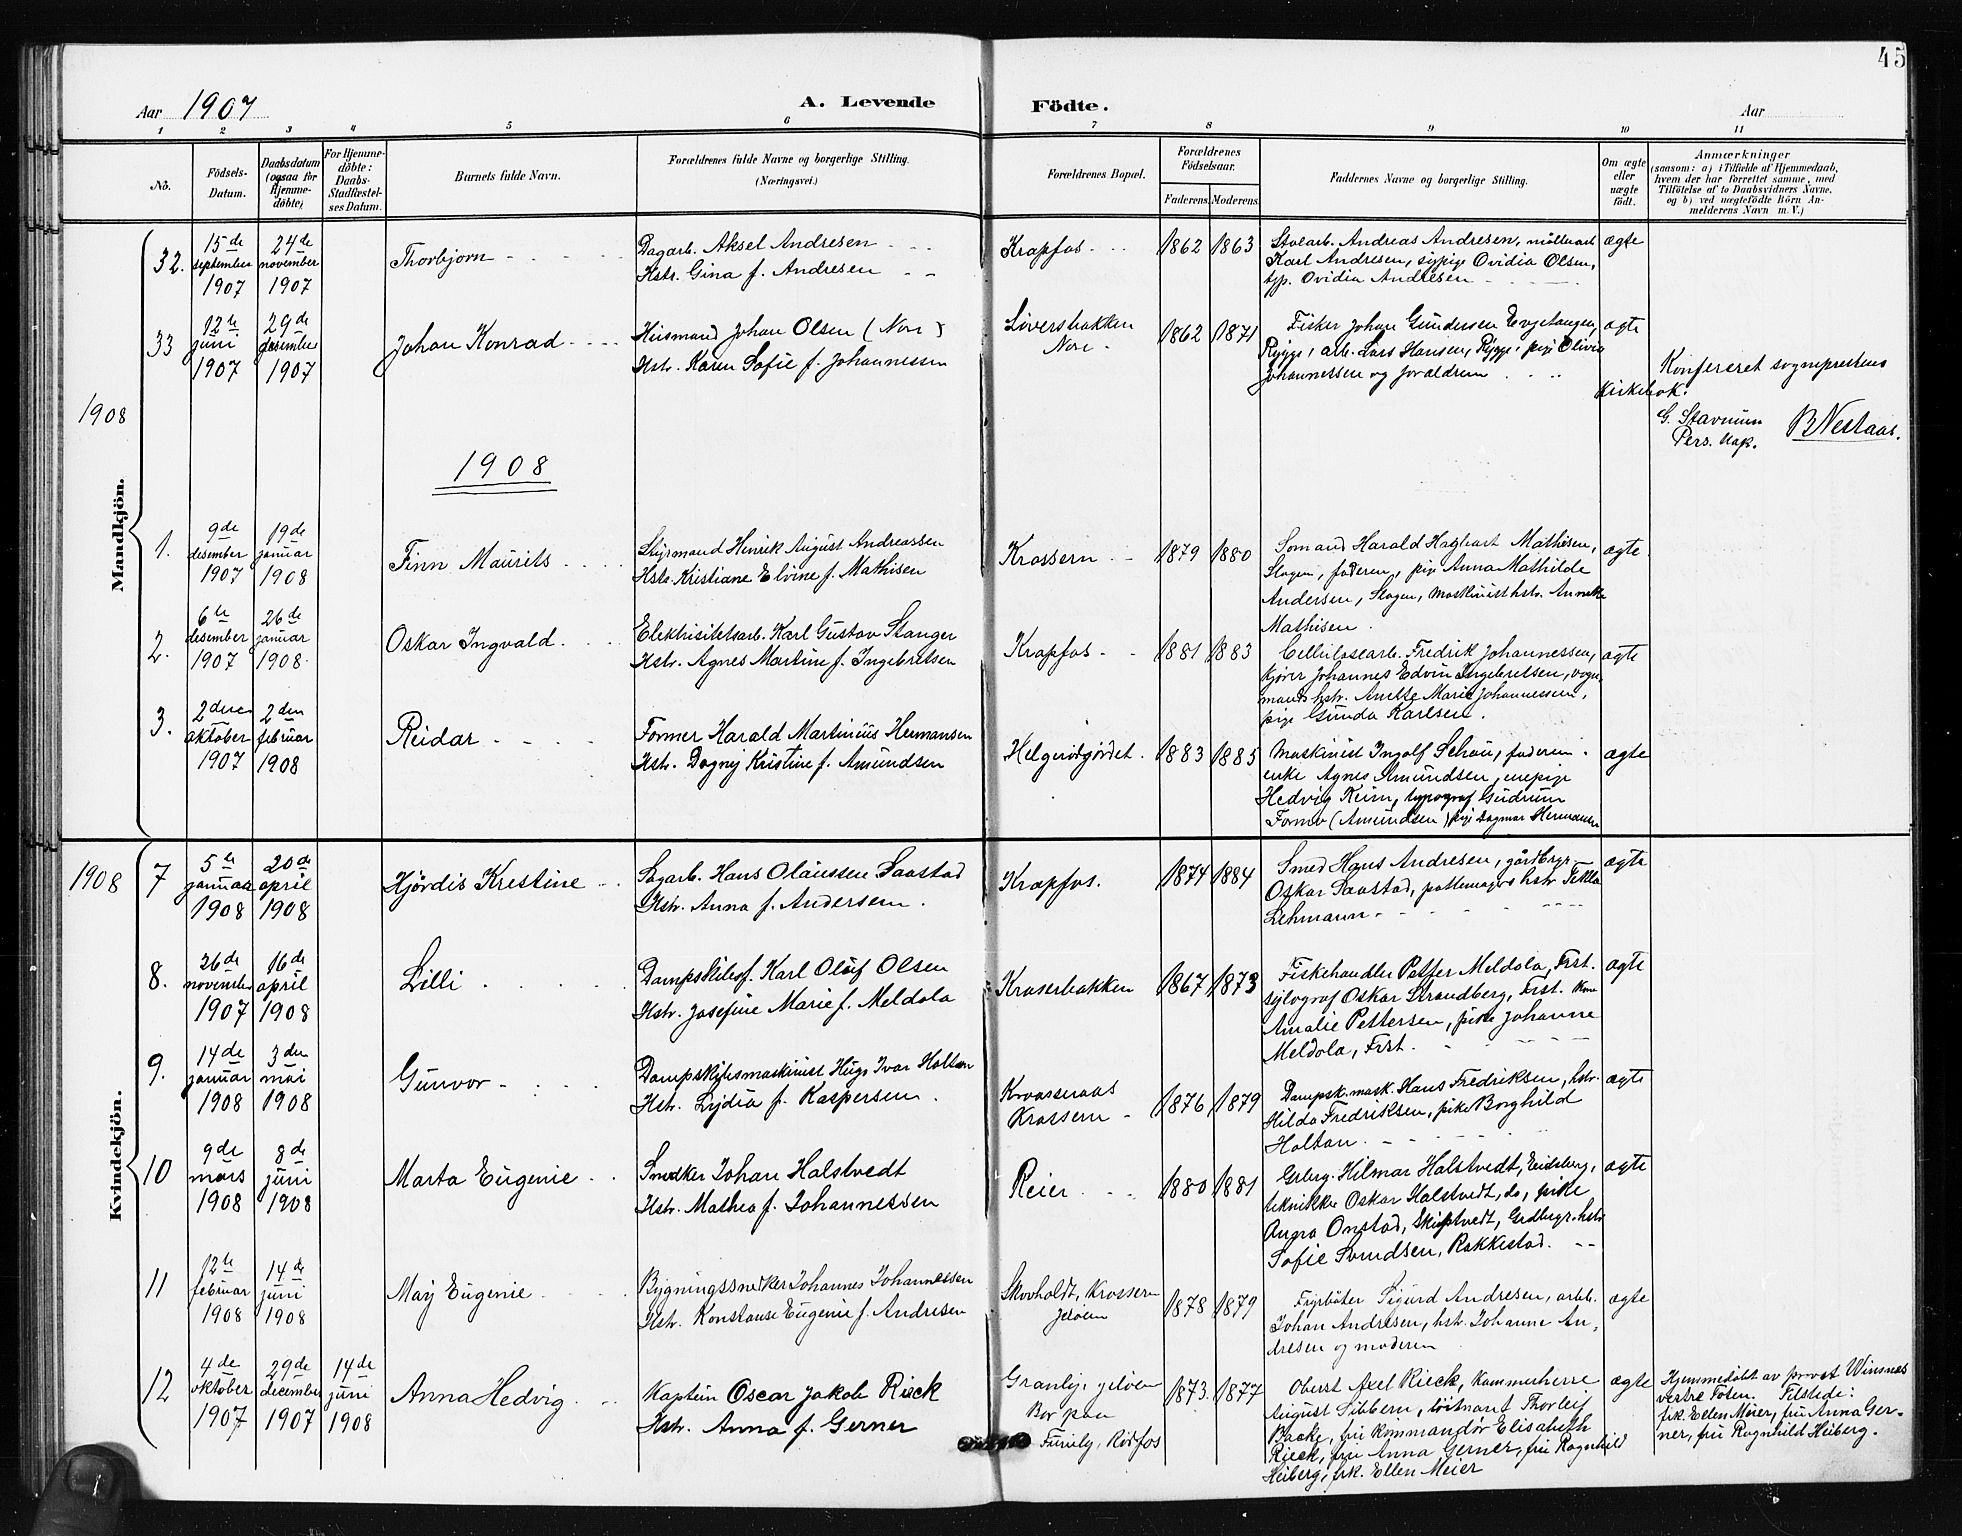 45
Aar 1907
A. Levende
Födte.
Aar
1 2 3 4 5 6 7 8 9 10 11
No.
Födsels-
Datum.
Daabsdatum
(ogsaa for
Hjemme-
döbte)
For Hjemme-
döbte:
Daabs-
Stadfæstel-
ses Datum.
Barnets fulde Navn.
Forældrenes fulde Navne og borgerlige Stilling.
(Næringsvei.)
Forældrenes Bopæl.
Forældrenes
Födselsaar.
Faderens. Moderens.
Faddernes Navne og borgerlige Stilling.
Om ægte
eller
uægte
födt.
Anmærkninger
(saasom: a) i Tilfælde af Hjemmedaab,
hvem der har forrettet samme, med
Tilföielse af to Daabsvidners Navne,
og b) ved uægtefödte Börn An-
melderens Navn m. V.)
Mandkjön.
32.
15de
september
1907
24de
november
1907
Thorbjorn
Dagarb. Aksel Andresen
Hstr. Gina f. Andresen
Krapfos
1862 1863
Stuearb. Andreas Andresen, møllearb
Karl Andresen, sypige Ovidia Olsen,
typ. Ovidia Andresen
ægte
33
12te
juni
1907
29de
desember
1907
Johan Konrad
Husmand Johan Olsen (Nore)
Hstr. Karen Sofie f. Johannessen
Siversbakken
Nore
1862 1871
Fisker Johan Gundersen Evjetangen,
Rygge, arb. Lars Hansen, Rygge, pige Olivia
Johannessen og forældrene
ægte
Konfereret sogneprestens
kirkebok.
G. Stavnum
Pers. kap.
B Nestaas.
1908
1908
1.
9de
desember
1907
19de
januar
1908
Finn Maurits
Styrmand Henrik August Andreassen
Hstr. Kristiane Elvine f. Mathisen
Krossern
1879 1880
Sømand Harald Hagbart Mathisen,
Slagen, faderen, pige Anna Mathilde
Andersen, Slagen, maskinisthstr. Annette
Mathisen.
ægte
2.
6te
desember
1907
26de
januar
1908.
Oskar Ingvald
Elektrisitetsarb. Karl Gustav Stanger
Hstr. Agnes Martine f. Ingebretsen
Krapfos
1881 1883
Cellulosearb. Fredrik Johannessen,
kjører Johannes Edvin Ingebretsen, vogn-
mands hstr. Anette Marie Johannessen,
pige Gunda Karlsen.
ægte
3.
2den
oktober
1907
2den
februar
1908
Reidar
Former Harald Martinius Hermansen
Hstr. Dagny Kristine f. Amundsen
Helgerødgjordet.
1883 1885
Maskinist Ingolf Schou, faderen
enke Agnes Amundsen, urepige
Hedvig Keim, typograf Gudrum
Former (Amundsen) pige Dagmar Hermansen
ægte
1908
Kvindekjön.
7
5te
januar
1908
20de
april
1908
Hjördis Krestine
Sagarb. Hans Olaussen Saastad
Hstr. Anna f. Andersen.
Krapfos.
1874 1884
Smed Hans Andresen, gårdbrgr.
Oskar Saastad, pottemagers hstr. Tekla
Lehmann
ægte
8.
26de
november
1907
16de
april
1908
Lilli
Dampskibsf. Karl Oluf Olsen
Hstr. Josefine Marie f. Meldola
Kraserbakken
1867 1873
Fiskehandler Petter Meldola, Frst.
sylograf Oskar Strandberg, Frst. kone
Amalie Pettersen, pike Johanne
Meldola, Frst.
ægte
9.
14de
januar
1908
3den
mai
1908
Gunvor
Dampskibsmaskinist Hugo Ivar Holtan
Hstr. Lydia f. Kaspersen
Kroasenaas
Krossern
1876 1879
Dampsk.mask. Hans Fredriksen, hstr.
Hilda Fredriksen, pike Borghild
Holtan.
ægte
10
9de
mars
1908
8de
juni
1908
Marta Eugenie
Snedker Johan Halstvedt
Hstr. Mathea f. Johannessen
Reier
1880 1881
Grbrg. Hilmar Halstvedt, Eidsberg,
tekniker Oskar Halstvedt, do, pike
Augra Onstad, Skiptvedt, Grdbrgr. hstr
Sofie Svendsen, Rakkestad.
ægte
11
12te
februar
1908
14de
juni
1908
May Eugenie
Bygningssnedker Johannes Johannessen
Hstr. Konstanse Eugenie f. Andresen
Skovholdt, Krossern
Jeløen
1878 1879
Fyrbøter Sigurd Andresen, arbb.
Johan Andresen, hst. Johanne An-
dresen og moderen
ægte
12
4de
oktober
1907
29de
december
1907
14de
juni
1908
Anna Hedvig
Kaptein Oscar Jakob Rieck
Hstr. Anna f. Gerner
Granly, jeløen
Bor paa
Furuly, Rødfos
1873. 1877
Oberst Axel Rieck, Kammerherre
August Sibbern, løitnant Thorleif
Backe, fru kommandør Elisabeth
Rieck, fru Anna Gerner, fru Ragnhild
Heiberg, frk. Ellen Meier
ægte
Hjemmedøbt av provst Winsnes
vestre Toten. Tilstede:
frk. Ellen Meier, fru Anna Ger-
ner, fru Ragnhild Heiberg.